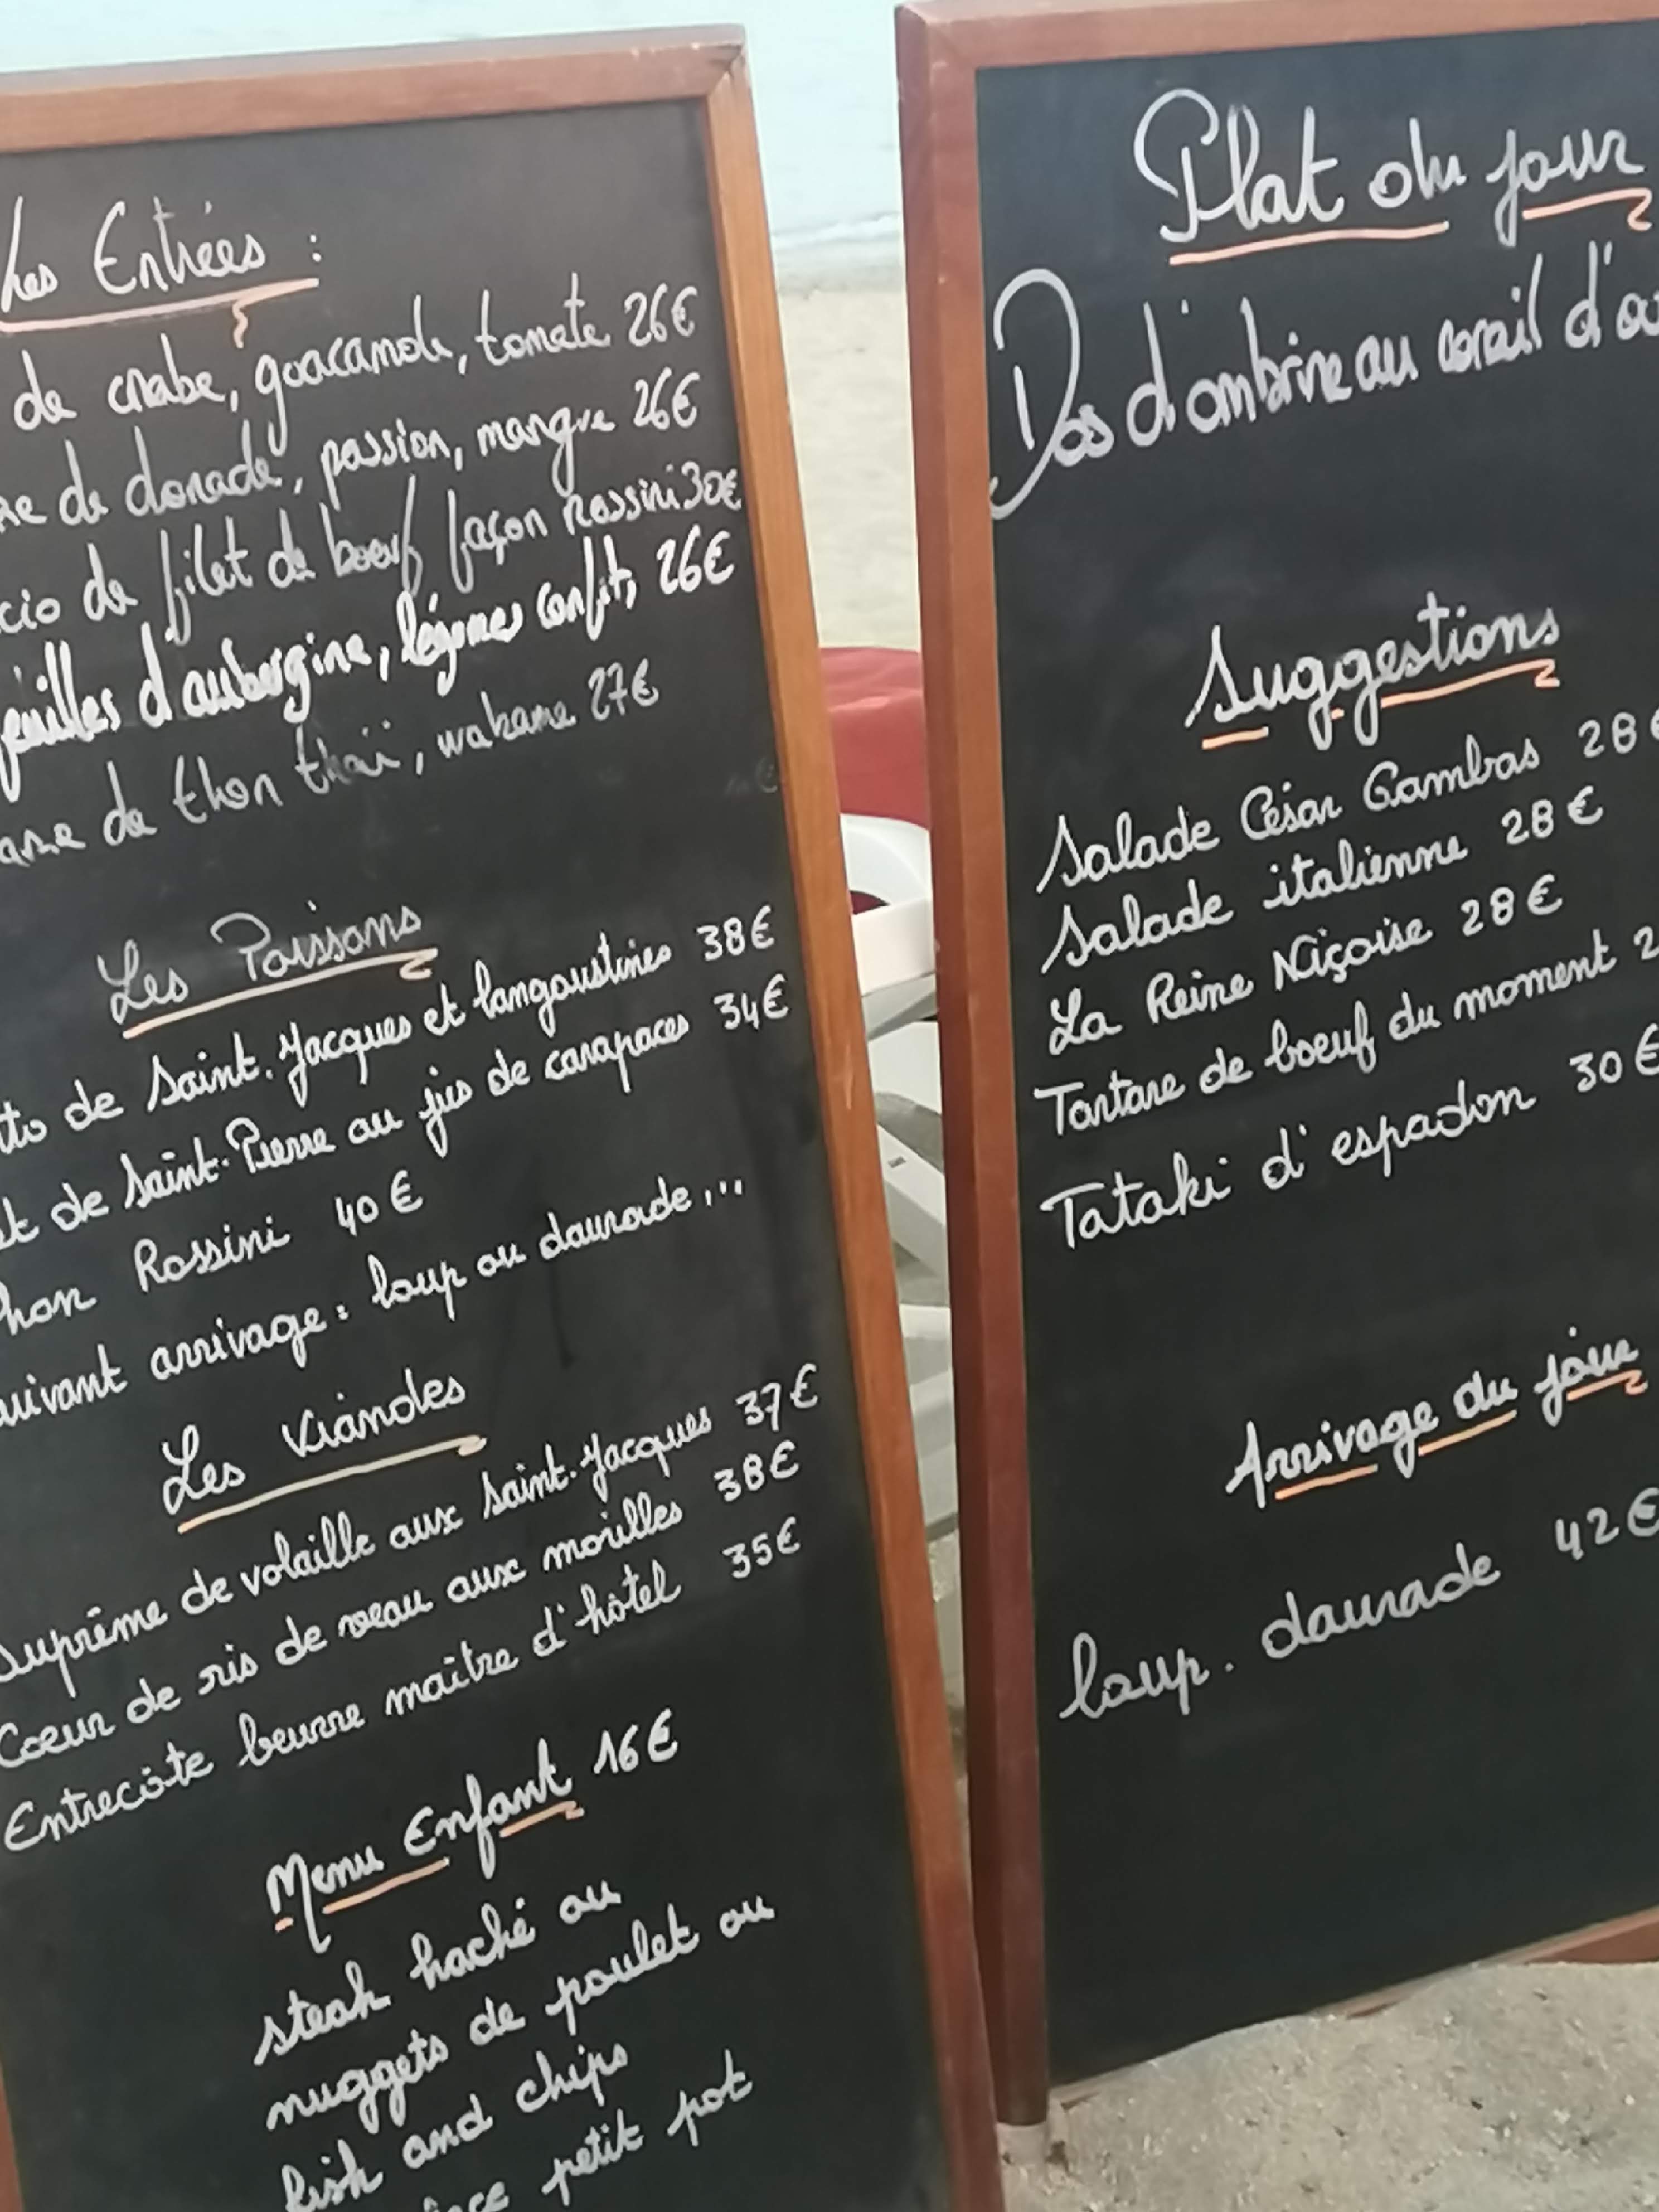 Les Entrées :
de crabe, guacamole, tomate 26€
re de dorade, passion, mangue 26€
cio de filet de boeuf façon Rossini 30€
feuilles d'aubergine, légumes confits 26€
are de thon thaï, wakame 27€
Les Poissons
to de Saint-Jacques et langoustines 38€
et de Saint-Pierre au jus de carapaces 34€
hon Rossini 40€
uivant arrivage : loup ou daurade...
Les Viandes
Suprême de volaille aux Saint-Jacques 37€
Coeur de ris de veau aux morilles 38€
Entrecôte beurre maître d'hôtel 35€
Menu Enfant 16€
steak haché ou
nuggets de poulet ou
fish and chips
petit pot
Plat du jour
Dos d'ombrine au corail d'ou
Suggestions
Salade César Gambas 28€
Salade italienne 28€
La Reine Niçoise 28€
Tartare de boeuf du moment 2
Tataki d'espadon 30€
Arrivage du jour
loup. daurade 42€